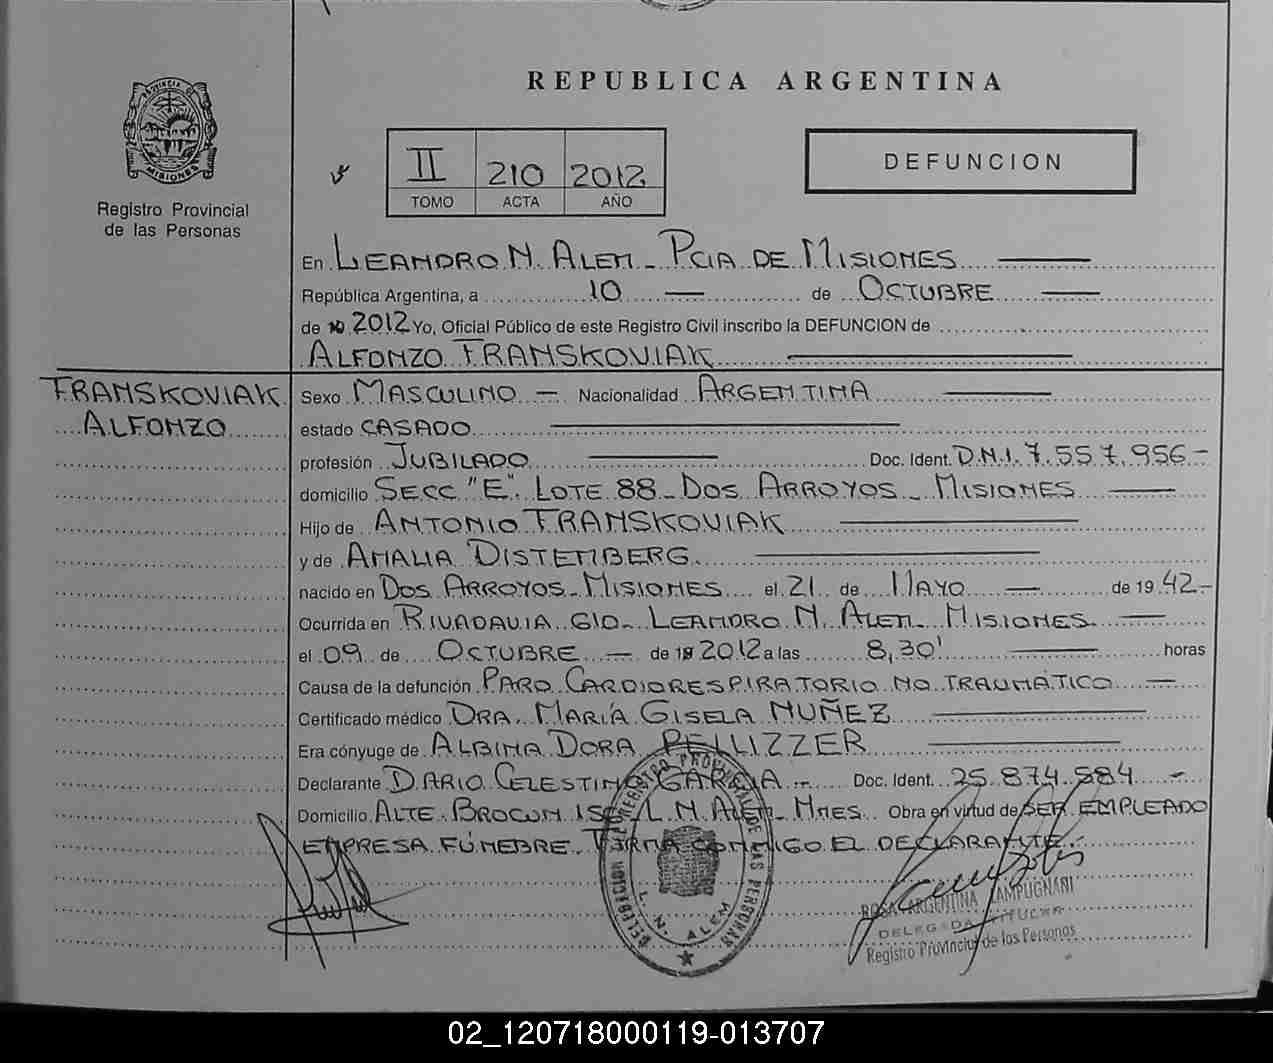 REPUBLICA ARGENTINA
PROVINCIA DE
MISIONES
Registro Provincial
de las Personas
II 210 2012
TOMO ACTA AÑO
DEFUNCION
En LEANDRO N. ALEM - PCIA DE MISIONES
República Argentina, a 10 de OCTUBRE
de 2012 Yo, Oficial Público de este Registro Civil inscribo la DEFUNCION de
ALFONZO FRANSKOVIAK
FRANSKOVIAK
ALFONZO
Sexo MASCULINO - Nacionalidad ARGENTINA
estado CASADO
profesión JUBILADO Doc. Ident. D.N.I. 7.557.956-
domicilio SECC "E". LOTE 88 - DOS ARROYOS - MISIONES
Hijo de ANTONIO FRANSKOVIAK
y de AMALIA DISTEMBERG.
nacido en DOS ARROYOS - MISIONES el 21 de MAYO de 19 42.-
Ocurrida en RIVADAVIA 610 - LEANDRO N. ALEM - MISIONES
el 09 de OCTUBRE - de 19 2012 a las 8,30' horas
Causa de la defunción PARO CARDIORESPIRATORIO NO TRAUMÁTICO
Certificado médico DRA. MARÍA GISELA NUÑEZ
Era cónyuge de ALBINA DORA PELLIZZER
Declarante DARIO CELESTINO GARCIA - Doc. Ident. 25.874.584 -
Domicilio ALTE. BROWN L.N. ALEM - MNES. Obra en virtud de SER EMPLEADO
EMPRESA FÚNEBRE. FIRMA CONMIGO EL DECLARANTE.-
DELEGACION REGISTRO PROVINCIAL DE LAS PERSONAS
L. N. ALEM
ROSA ARGENTINA LAMPUGNANI
DELEGADA TITULAR
Registro Provincial de las Personas
02_120718000119-013707